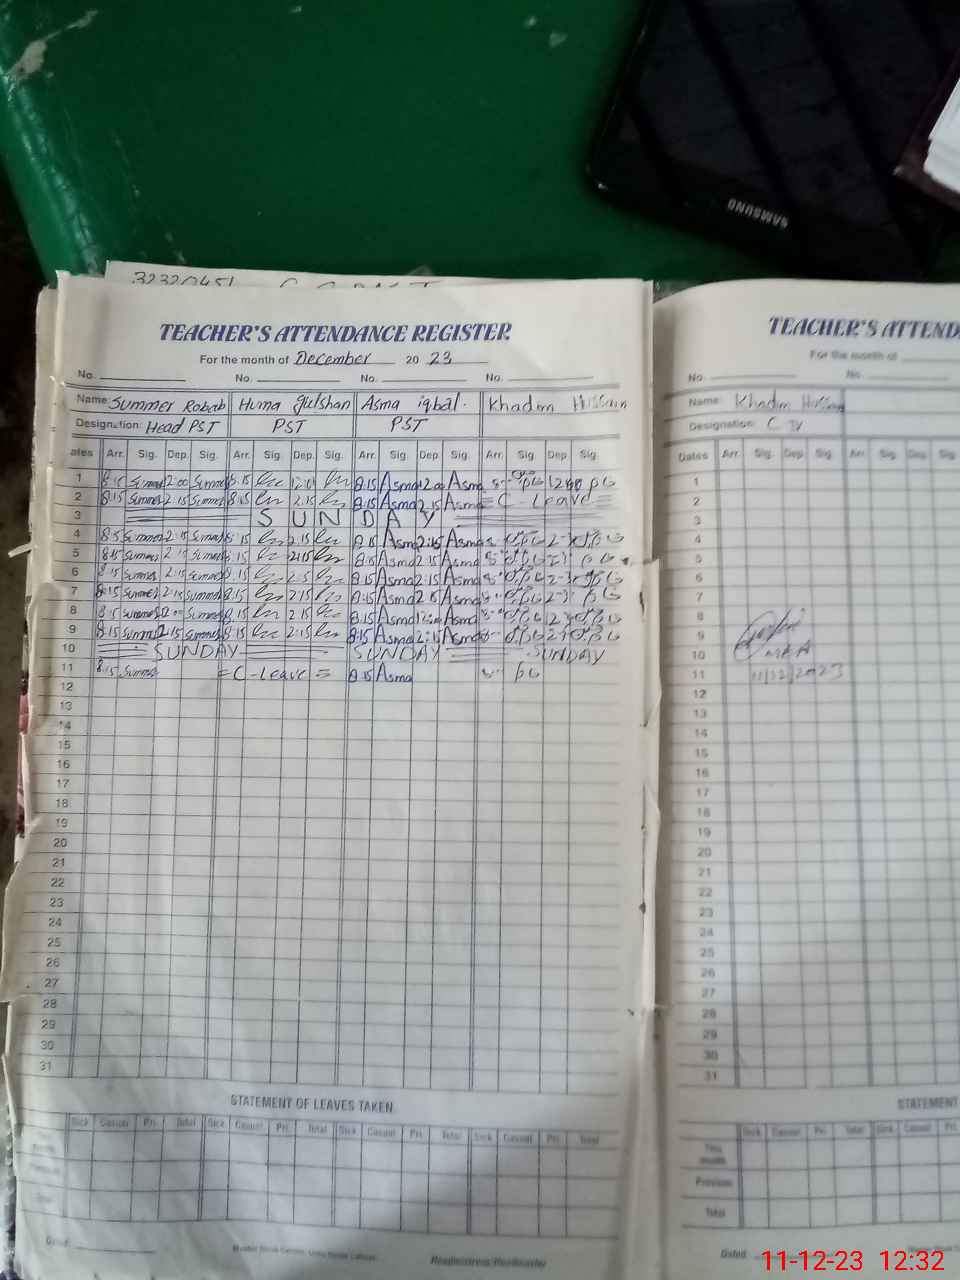 SAMSUNG
32320451
TEACHER'S ATTENDANCE REGISTER
For the month of December 20 23
No. No. No. No.
Name: Summer Robab Huma gulshan Asma iqbal. Khadim Hussain
Designation: Head PST PST PST
ates Arr. Sig. Dep. Sig. Arr. Sig. Dep. Sig. Arr. Sig. Dep. Sig. Arr. Sig. Dep Sig.
1 8:15 Summer 2:00 Summer 8:15 12:00 8:15 Asma 12:00 Asma
2 8:15 Summer 2:15 Summer 8:15 2:15 8:15 Asma 2:15 Asma = C - Leave =
3 SUNDAY
4 8:15 Summer 2:15 Summer 8:15 2:15 8:15 Asma 2:15 Asma
5 8:15 Summer 2:15 Summer 8:15 2:15 8:15 Asma 2:15 Asma
6 8:15 Summer 2:15 Summer 8:15 2:15 8:15 Asma 2:15 Asma
7 8:15 Summer 2:15 Summer 8:15 2:15 8:15 Asma 2:15 Asma
8 8:15 Summer 12:00 Summer 8:15 2:15 8:15 Asma 12:00 Asma
9 8:15 Summer 2:15 Summer 8:15 2:15 8:15 Asma 2:15 Asma
10 SUNDAY SUNDAY SUNDAY
11 8:15 Summer = C - Leave = 8:15 Asma
12
13
14
15
16
17
18
19
20
21
22
23
24
25
26
27
28
29
30
31
STATEMENT OF LEAVES TAKEN
Sick Casual Pri. Total Sick Casual Pri. Total Sick Casual Pri. Total Sick Casual Pri. Total
Dated
Headmistress/Headmaster
TEACHER'S ATTEND
For the month of
No. No.
Name: Khadim Hussain
Designation:
Dates Arr. Sig. Dep Sig. Arr. Sig. Dep. Sig.
1
2
3
4
5
6
7
8
9
10 MEA
11 11/12/2023
12
13
14
15
16
17
18
19
20
21
22
23
24
25
26
27
28
29
30
31
STATEMENT
Sick Casual Pri. Total Sick Casual Pri.
This month
Previous
Total
Dated
11-12-23 12:32